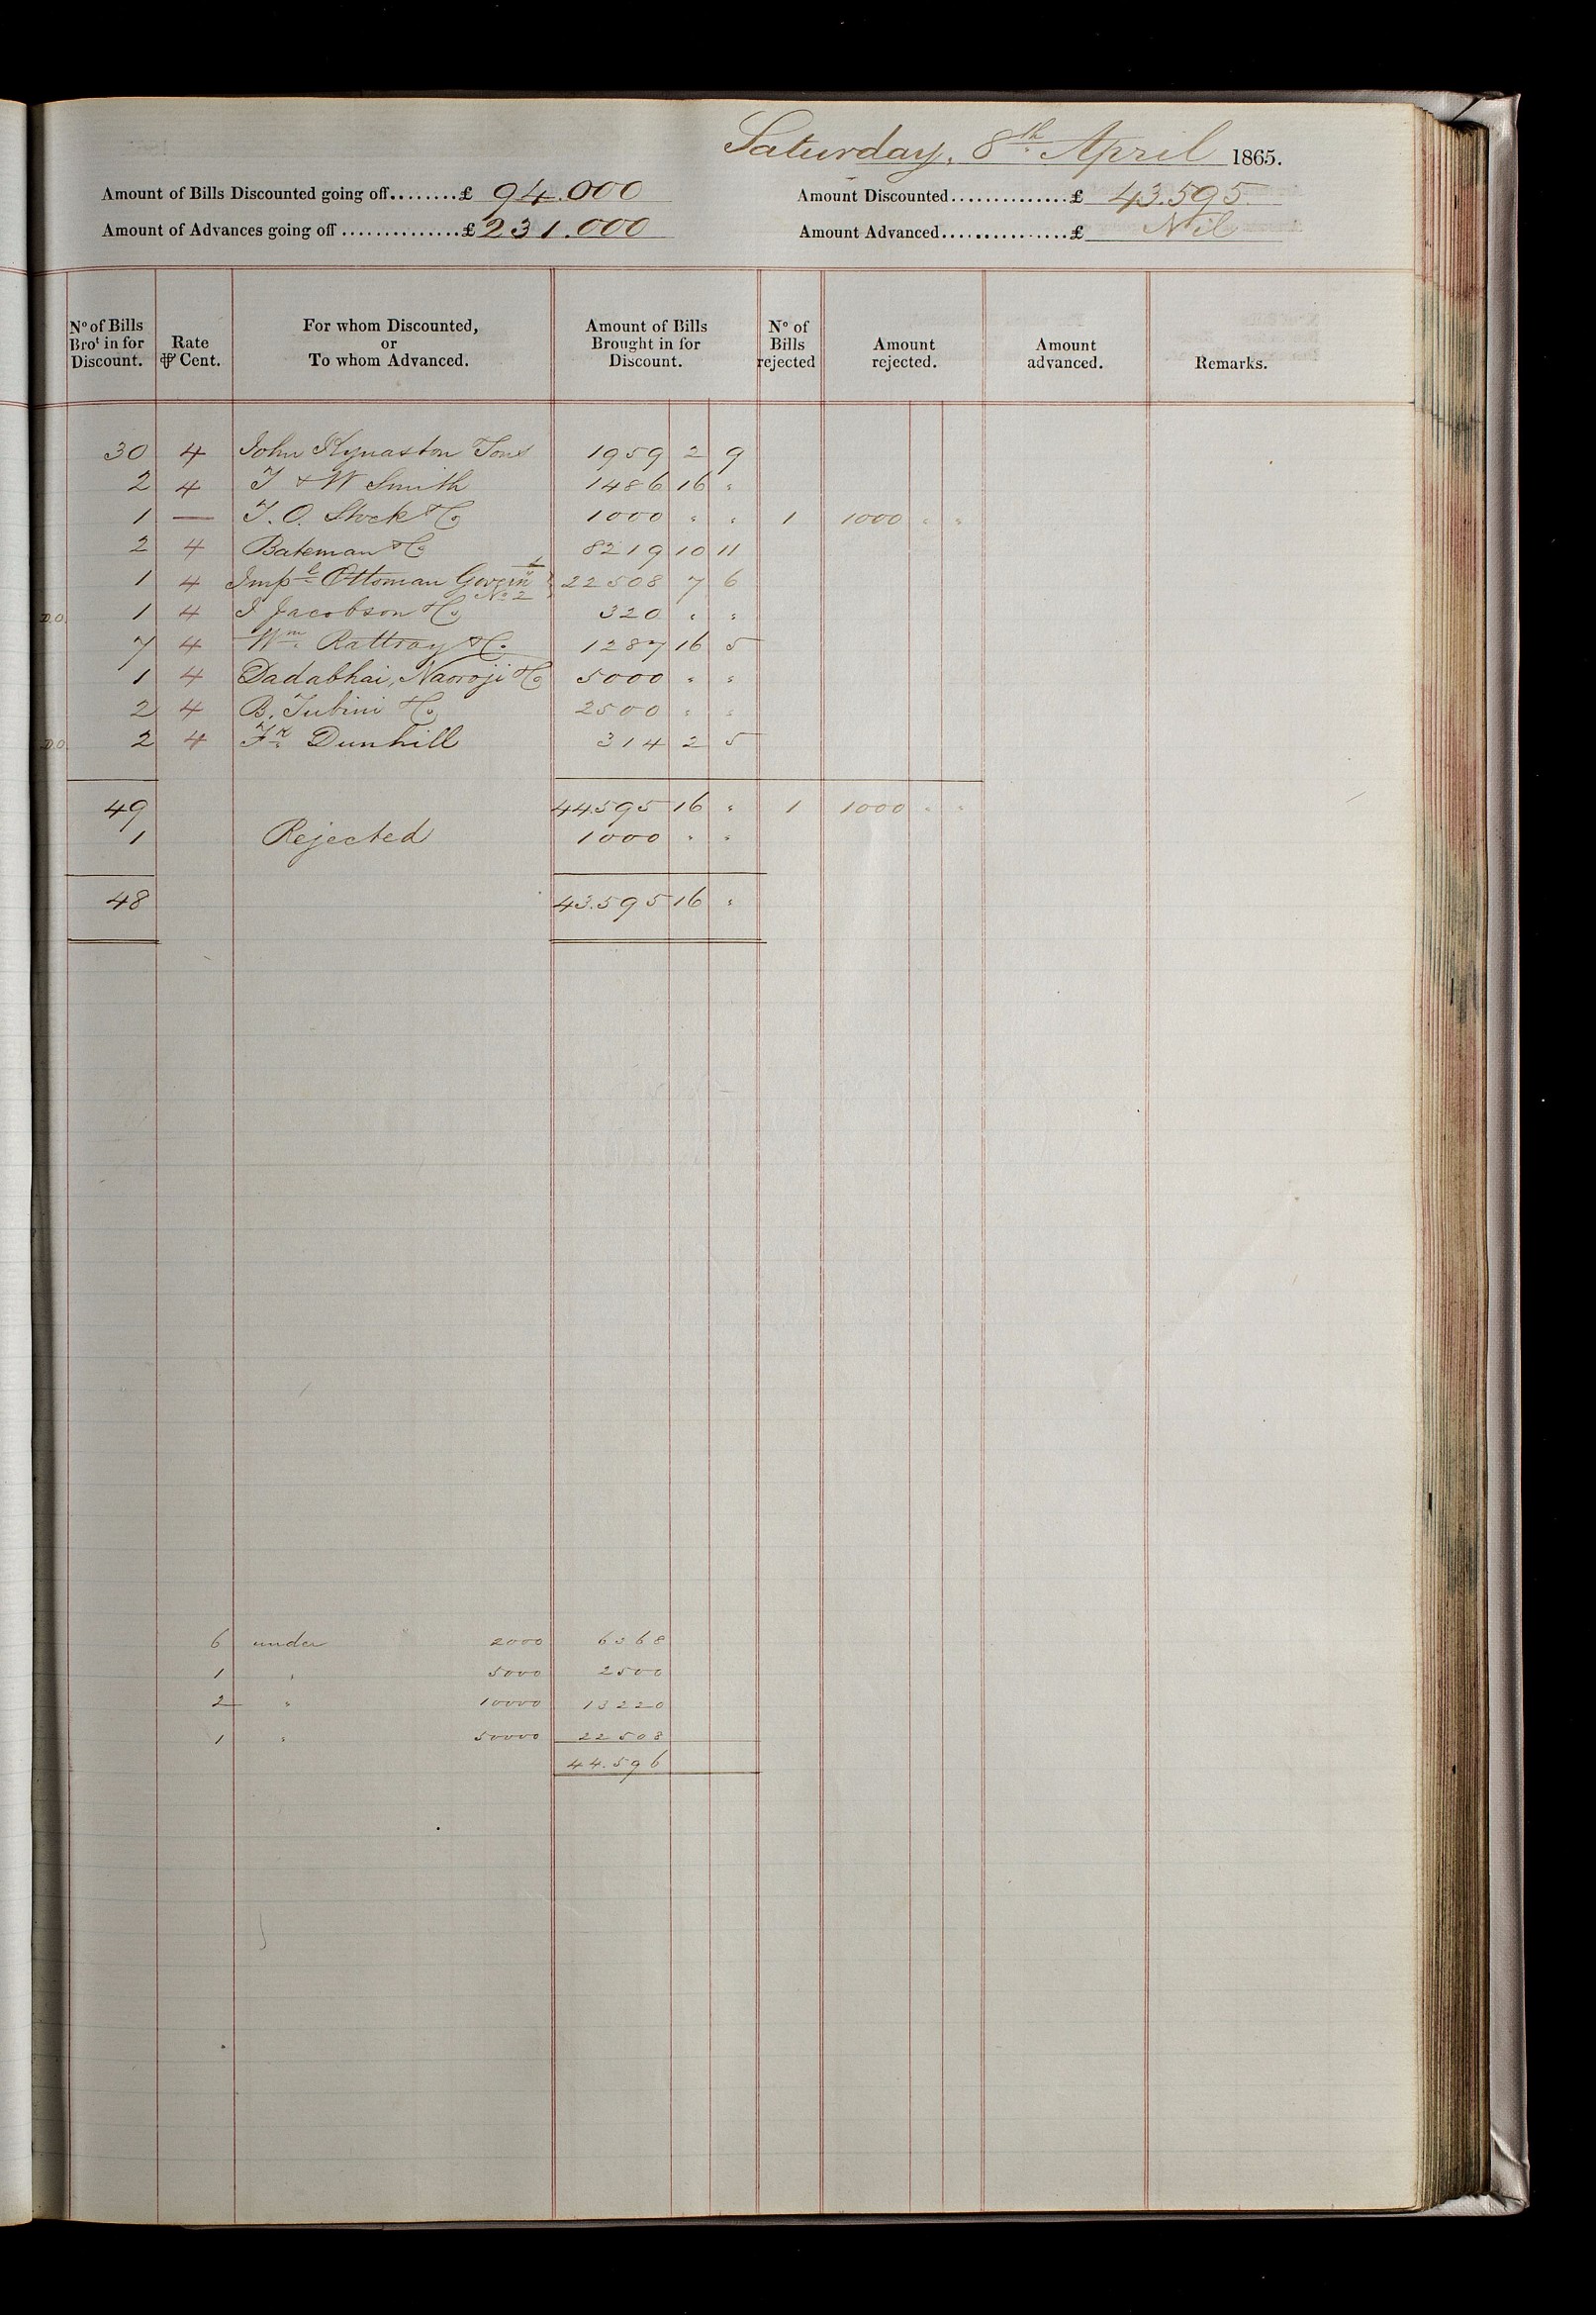 Saturday, 8th April 1865.
Amount of Bills Discounted going off........£ 94.000 Amount Discounted..............£ 43.595
Amount of Advances going off..............£ 231.000 Amount Advanced................£ Nil
No of Bills Brot in for Discount. Rate ⅌ Cent. For whom Discounted, or To whom Advanced. Amount of Bills Brought in for Discount. No of Bills rejected Amount rejected. Amount advanced. Remarks.
30 4 John Kynaston Sons 1959 2 9
2 4 T & W Smith 1486 16 "
1 — T. O. Stock & Co 1000 " " 1 1000 " "
2 4 Bateman & Co 8219 10 11
1 4 Impl Ottoman Govern't No 2 22508 7 6
D.O. 1 4 I Jacobson & Co 320 " "
7 4 Wm Rattray & Co 1287 16 5
1 4 Dadabhai, Naoroji & Co 5000 " "
2 4 B. Tubini & Co 2500 " "
D.O. 2 4 Fk Dunhill 314 2 5
49 44.595 16 " 1 1000 " "
1 Rejected 1000 " "
48 43.595 16 "
6 under 2000 6368
1 " 5000 2500
2 " 10000 13220
1 " 50000 22508
44.596